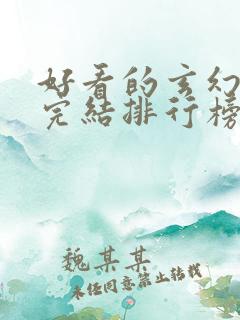 好看的玄幻
完結排行榜
魏某某
未经同意禁止转载